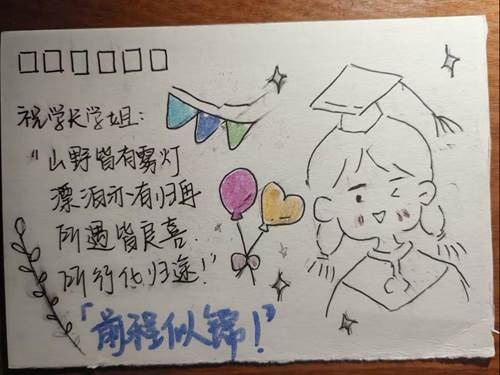 祝学长学姐:
“山野皆有雾灯
漂泊亦有归舟
所遇皆良喜.
所行化归途!”
「前程似锦!”